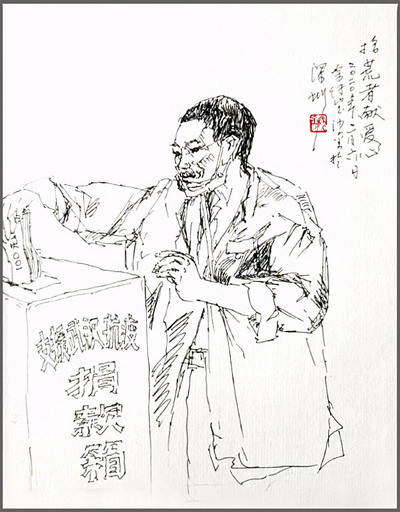 拾荒者献爱心
二〇二〇年二月六日
深圳
100
支援武汉抗疫
捐
款
箱